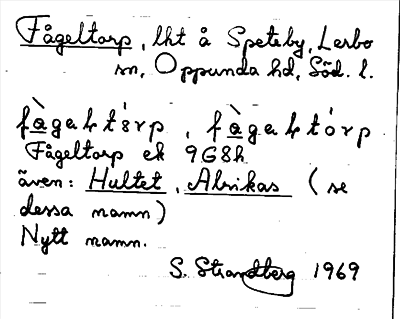 Fågeltorp, lht å Speteby, Lerbo
sn, Oppunda hd, Söd. l.
Fågeltorp ek 9G8h
även: Hultet, Abrikas (se
dessa namn)
Nytt namn.
S. Strandberg 1969